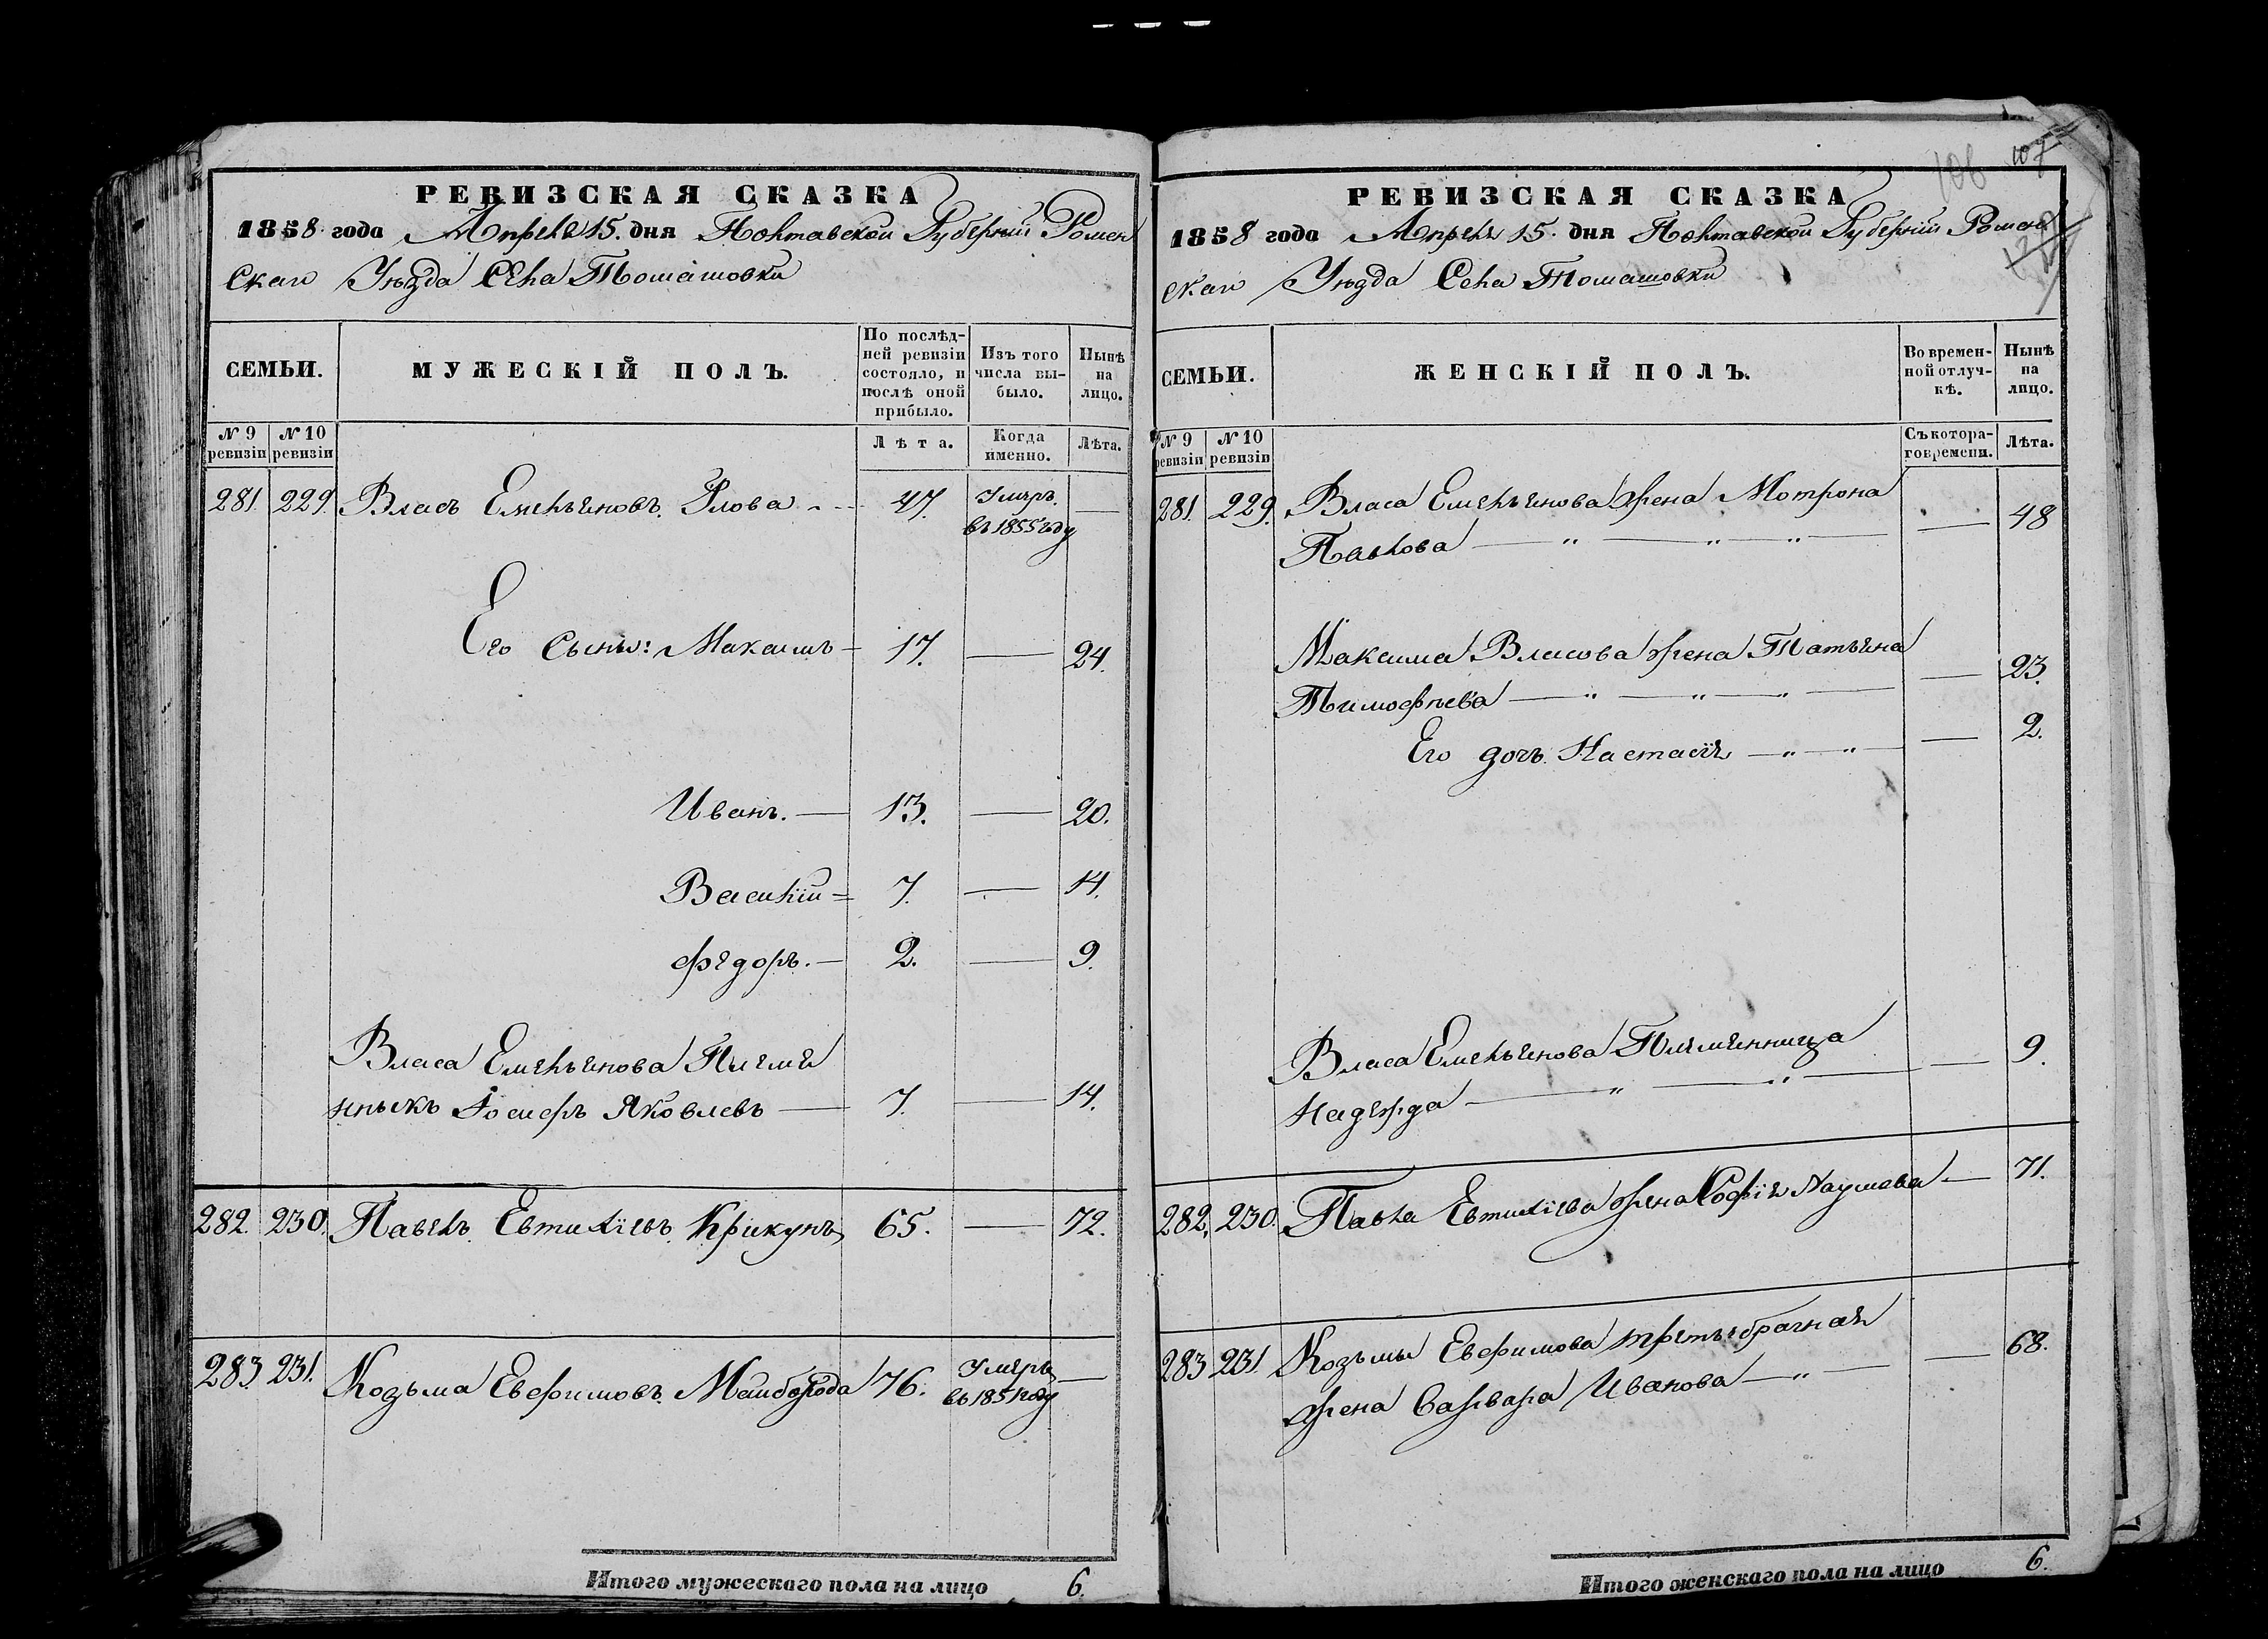 РЕВИЗСКАЯ СКАЗКА
1858 года Апреля 15. дня Полтавской Губерніи Ромен
скаго Уѣзда Села Томашовки
СЕМЬИ.
МУЖЕСКІЙ ПОЛЪ.
По послѣд-
ней ревизіи
состояло, и
послѣ оной
прибыло.
Изъ того
числа вы-
было.
Нынѣ
на
лицо.
№ 9 ревизіи
№ 10 ревизіи
Лѣта.
Когда
именно.
Лѣта.
281. 229. Власъ Емельяновъ 47. Умеръ —
въ 1855 году
Его Сыны: Максимъ — 17. — 24.
Иванъ. — 13. — 20.
Василій = 7. — 14.
Федоръ. — 2. — 9.
Власа Емельянова Племя
нныкъ Іосифъ Яковлевъ — 7. — 14.
282. 230. Павелъ Евтихіевъ Крикунъ 65. — 72.
283. 231. Козьма Евфимовъ Майборода 76. Умеръ —
въ 1851 году
Итого мужескаго пола на лицо 6.
108 107
РЕВИЗСКАЯ СКАЗКА
1858 года Апреля 15. дня Полтавской Губерніи Ромен
скаго Уѣзда Села Томашовки
СЕМЬИ.
ЖЕНСКІЙ ПОЛЪ.
Во времен-
ной отлуч-
кѣ.
Нынѣ
на
лицо.
№ 9 ревизіи
№ 10 ревизіи
Съ котора-
го времени.
Лѣта.
281. 229. Власа Емельянова жена Мотрона
Павлова — " — " — " — — 48
Максима Власова жена Татьяна
Тимофѣева — " — " — " — — 23.
Его дочь Настасія — " — " — — 2.
Власа Емельянова Племянница
Надежда — " — " — — 9.
282. 230. Павла Евтихіева жена Софія Наумова — 71.
283 231. Козьмы Евфимова третьебрачная
жена Варвара Иванова — " — — 68.
Итого женскаго пола на лицо 6.